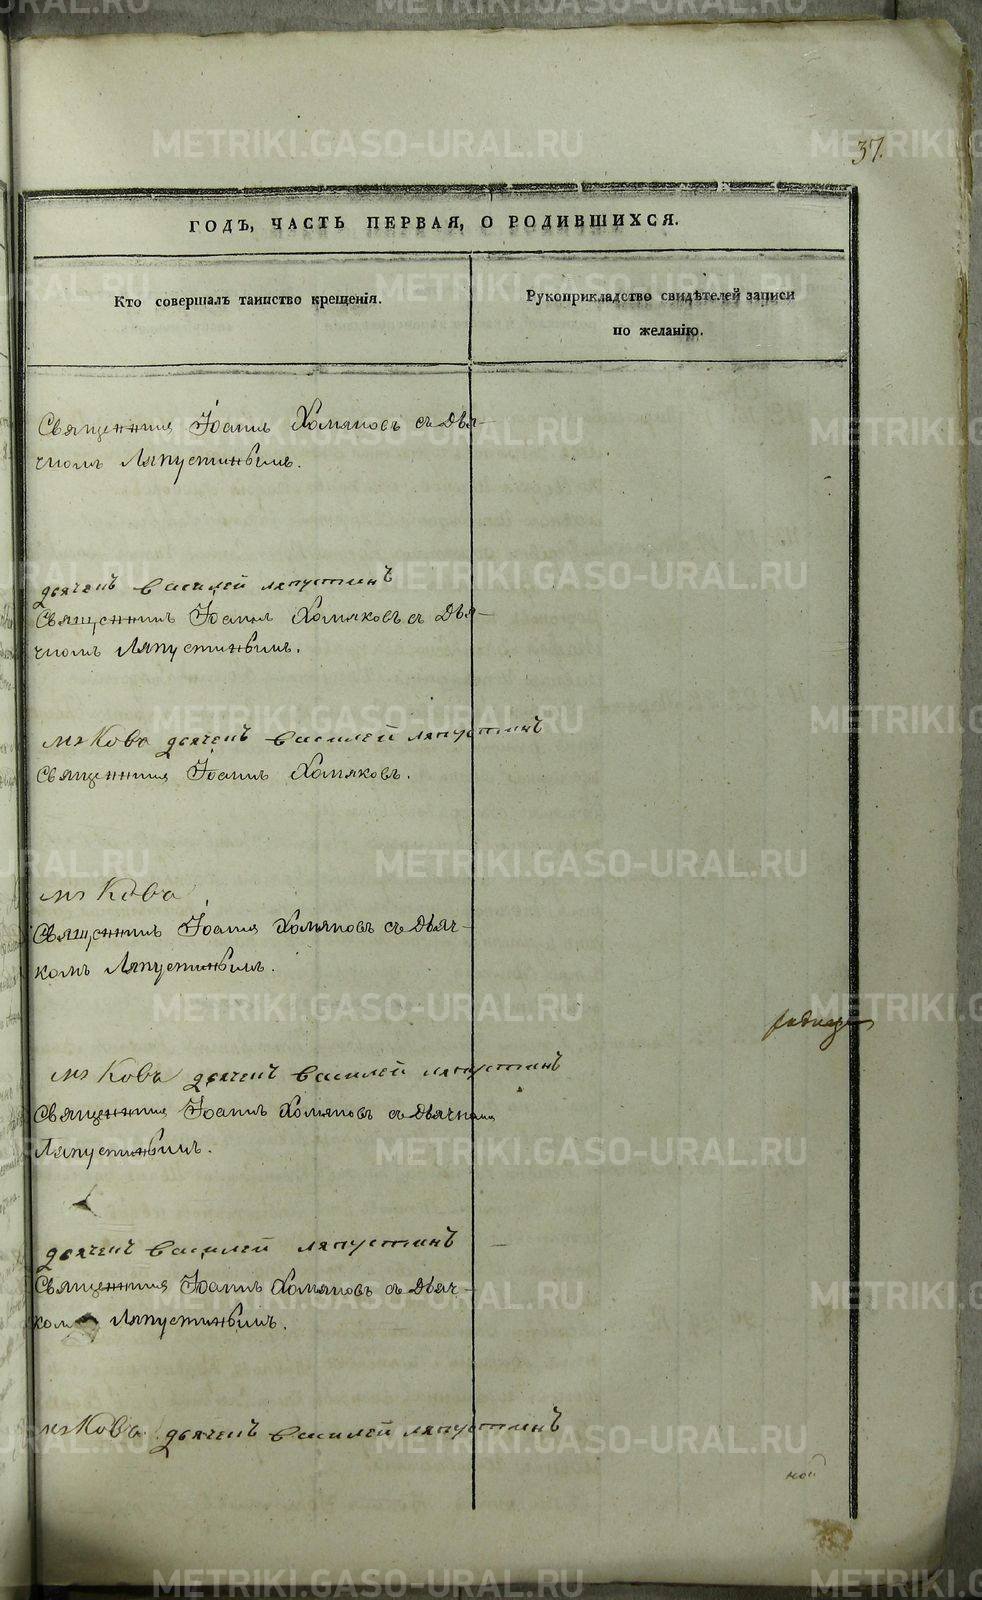 37.
ГОДЪ, ЧАСТЬ ПЕРВАЯ, О РОДИВШИХСЯ.
Кто совершалъ таинство крещенія.
Рукоприкладство свидѣтелей записи
по желанію.
Священникъ Іоаннъ Хомяковъ съ Дья-
чкомъ Ляпустинымъ.
дьячекъ Василей ляпустинъ
Священникъ Іоаннъ Хомяковъ съ Дья-
чкомъ Ляпустинымъ.
мяковъ дьячекъ Василей ляпустинъ
Священникъ Іоаннъ Хомяковъ.
мяковъ
Священникъ Іоаннъ Хомяковъ съ Дьяч-
комъ Ляпустинымъ.
мяковъ дьячекъ Василей ляпустинъ
Священникъ Іоаннъ Хомяковъ съ Дьячкомъ
Ляпустинымъ.
дьячекъ Василей ляпустинъ
Священникъ Іоаннъ Хомяковъ съ Дьяч-
комъ Ляпустинымъ.
мяковъ дьячекъ Василей ляпустинъ
ной
METRIKI.GASO-URAL.RU